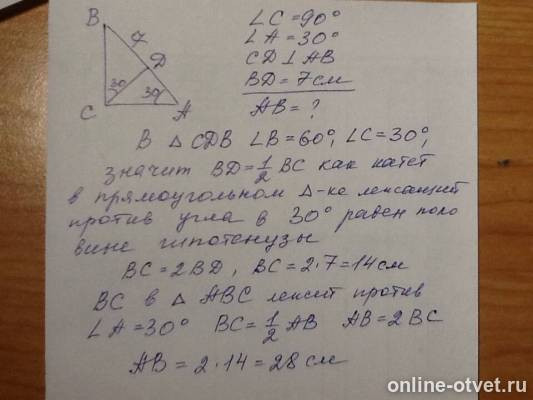 B
7
D
30
30
C
A
∠C=90°
∠A=30°
CD⊥AB
BD=7см
AB=?
В △ CDB ∠B=60°, ∠C=30°,
значит BD=1/2 BC как катет
в прямоугольном △-ке лежащий
против угла в 30° равен поло
вине гипотенузы
BC=2BD, BC=2·7=14см
BC в △ ABC лежит против
∠A=30° BC=1/2 AB AB=2BC
AB=2·14=28см
online-otvet.ru